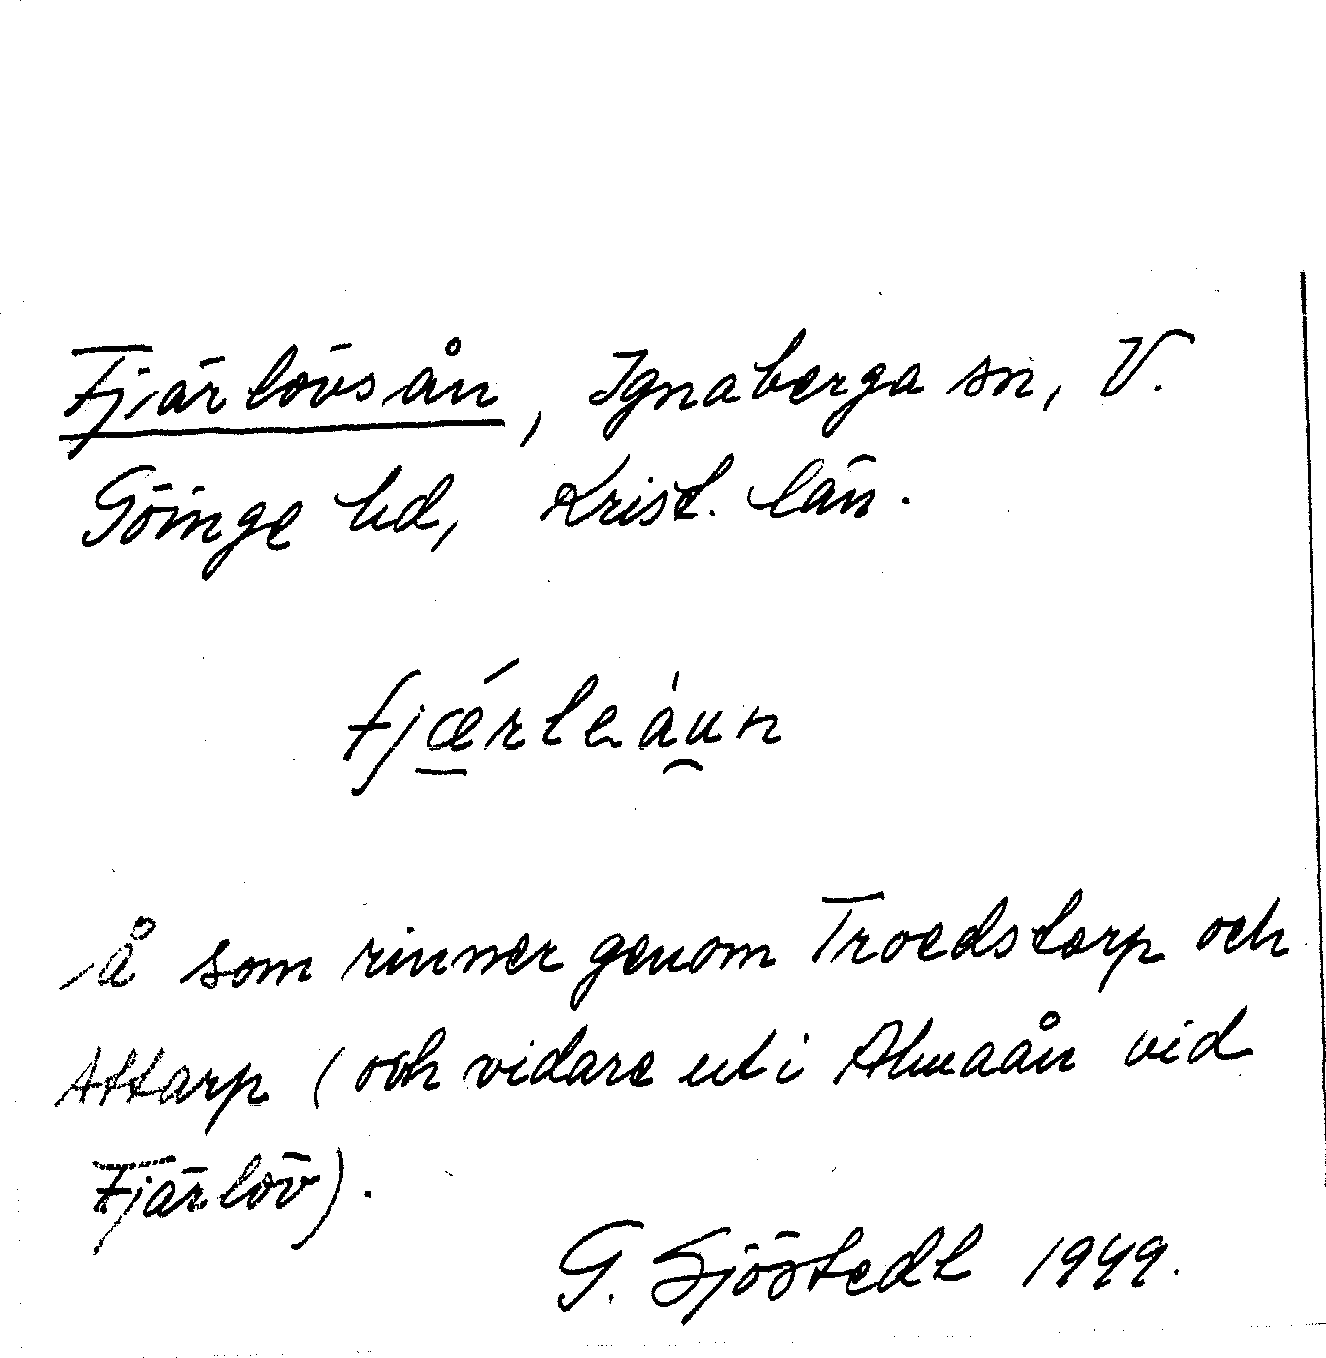 Fjärlövsån, Ignaberga sn, V.
Göinge hd, Krist. län.
fjǽrleáu̯n
Å som rinner genom Troedstorp och
Attarp (och vidare ut i Almaån vid
Fjärlöv).
G. Sjöstedt 1949.